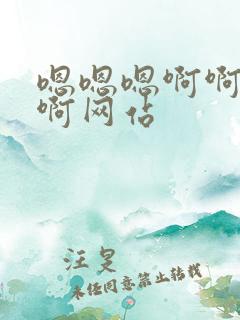 嗯嗯嗯啊啊
啊网佔
汪旻
未经同意禁止转载